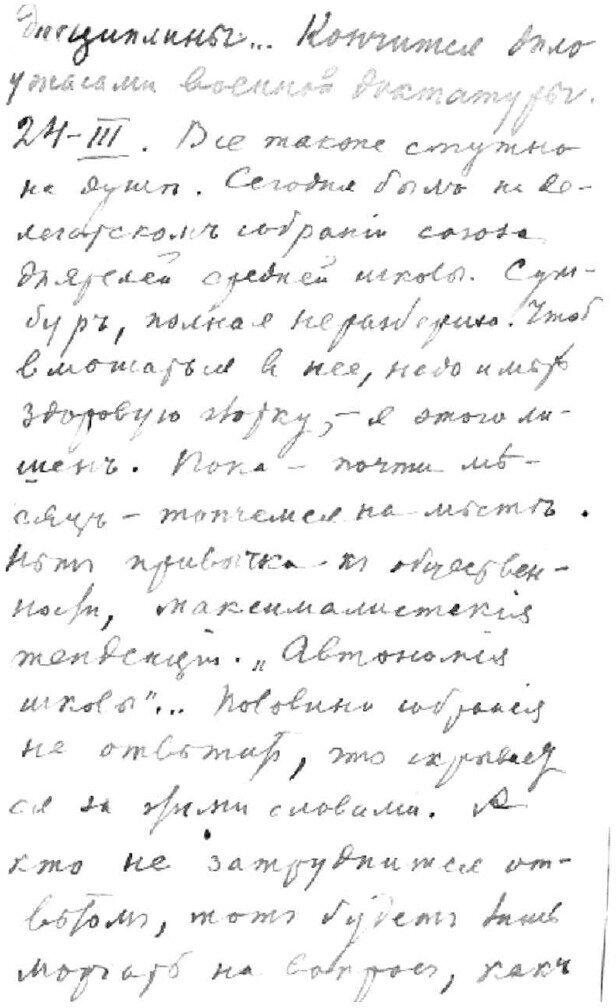 дисциплины... Кончится дѣло
ужасами военной диктатуры.
24-III. Все также смутно
на душѣ. Сегодня былъ на де-
легатскомъ собранiи союза
дѣятелей средней школы. Сум-
буръ, полная неразбериха. Чтоб
вмѣшаться в нее, надо имѣть
здоровую глотку, – я этого ли-
шенъ. Пока – почти мѣ-
сяцъ – топчемся на мѣстѣ.
Нѣтъ привычки къ обществен-
ности, максималистскiя
тенденцiи. „Автономiя
школы"... Половина собранiя
не отвѣтитъ, что скрывает
ся за этими словами. А
кто не затруднится от-
вѣтомъ, тотъ будетъ лишь
моргать на вопросъ, какъ